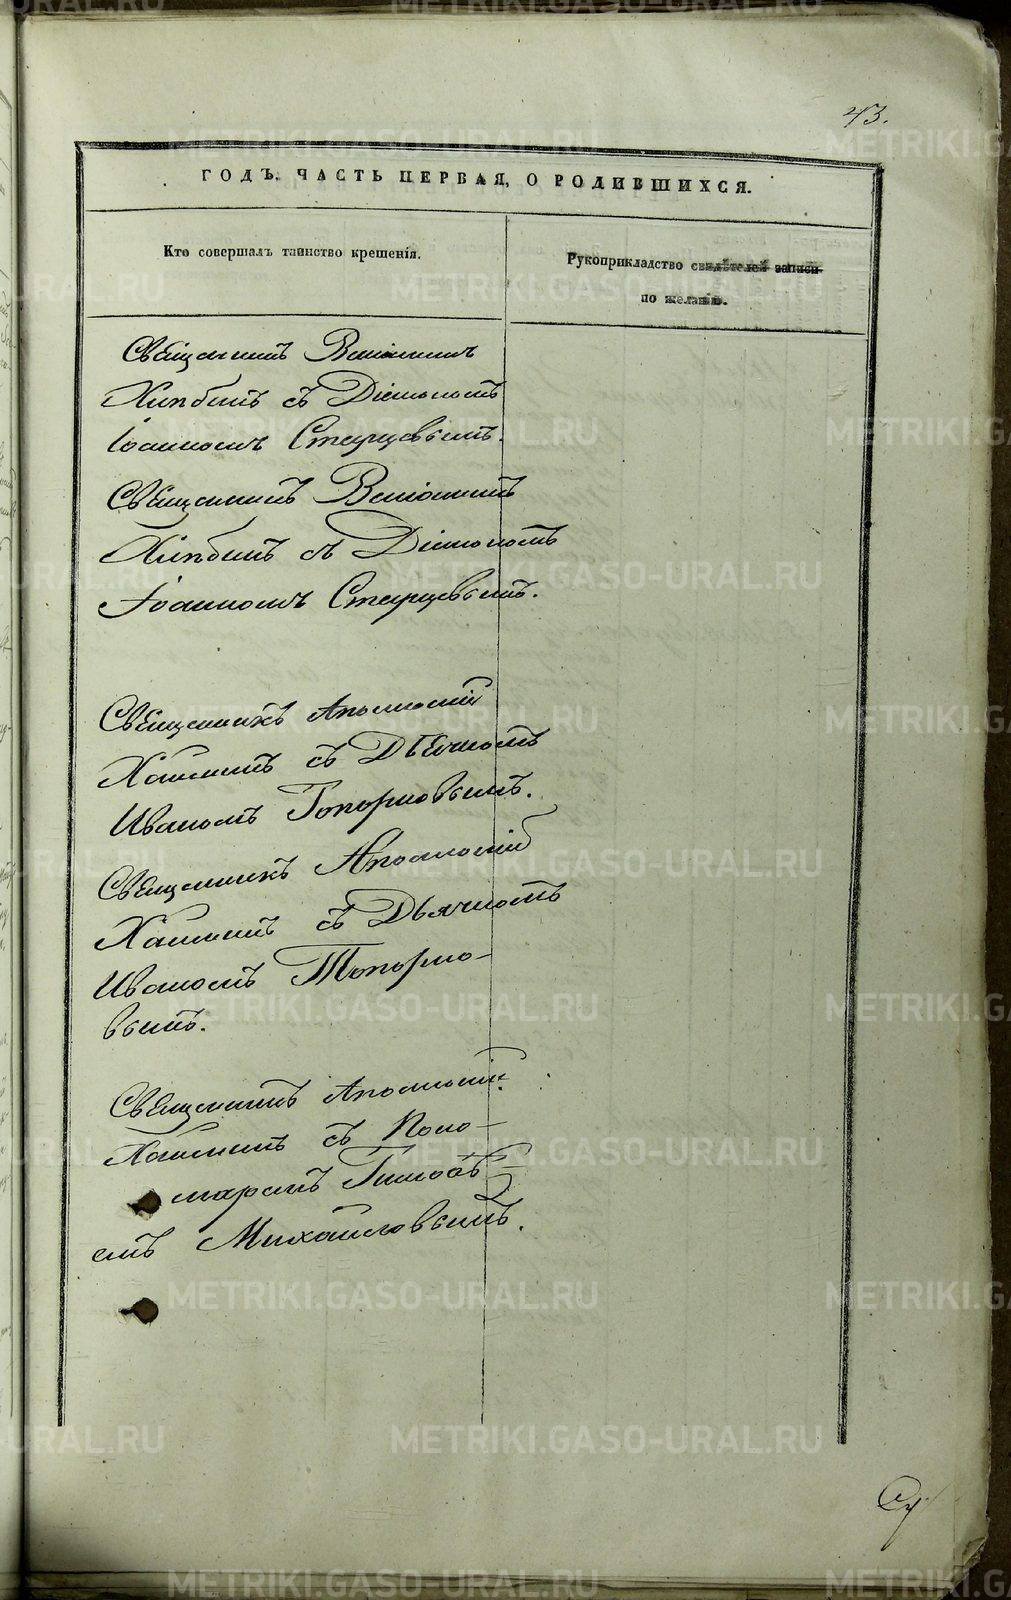 43.
ГОДЪ. ЧАСТЬ ПЕРВАЯ, О РОДИВШИХСЯ.
Кто совершалъ таинство крещенія.
Рукоприкладство свидѣтелей записи
по желанію.
Священникъ Веніаминъ
Хлѣбинъ съ Діакономъ
Іоанномъ Старцевымъ.
Священникъ Веніаминъ
Хлѣбинъ съ Діакономъ
Іоанномъ Старцевымъ.
Священникъ Аполлоній
съ Дьячкомъ
Иваномъ Топорковымъ.
Священникъ Аполлоній
съ Дьячкомъ
Иваномъ Топорко-
вымъ.
Священникъ Аполлоній
съ Поно-
маремъ
емъ Михайловымъ.
METRIKI.GASO-URAL.RU